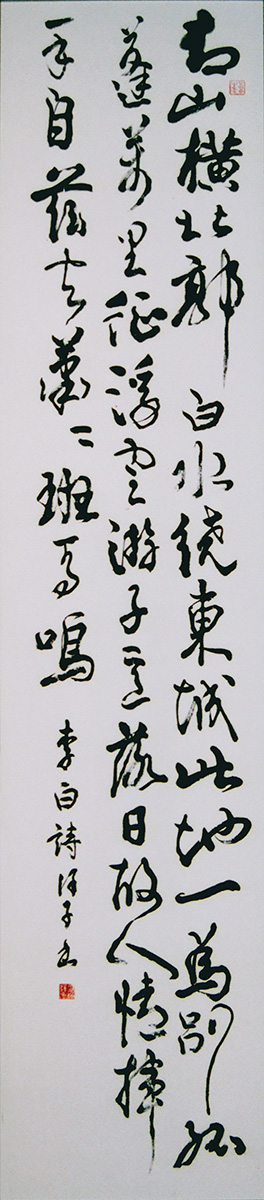 青山橫北郭白水繞東城此地一為別孤
蓬萬里征浮雲游子意落日故人情揮
手自茲去蕭〻班馬鳴
李白詩 子書